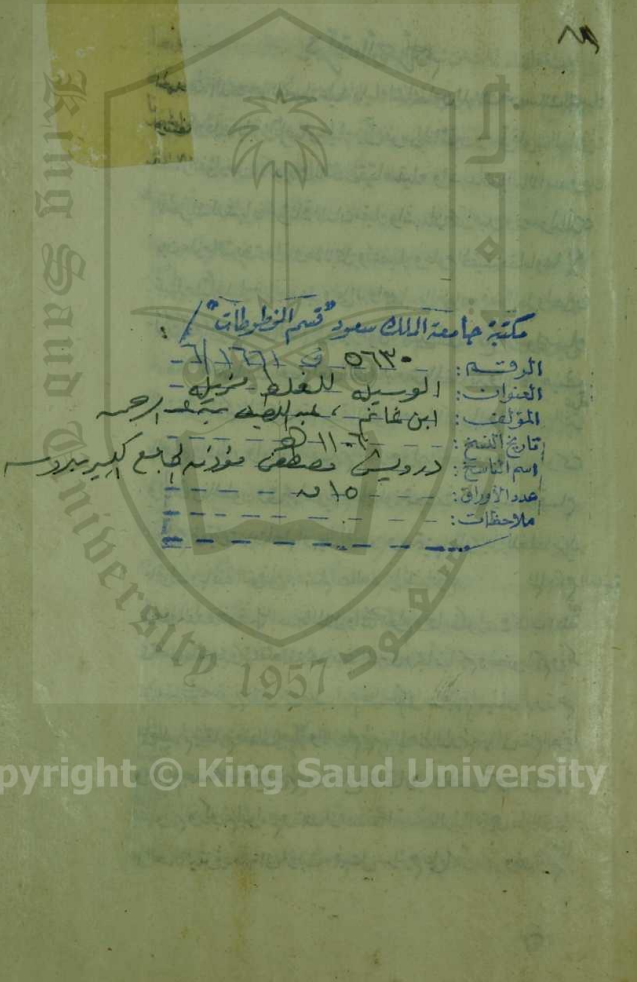 ٦٨
مكتبة جامعة الملك سعود "قسم المخطوطات"
الرقم: ٥٦٣٠ ف ١٦٩١/٦
العنوان: الوسيلة للغلط مزيلة
المؤلف: ابن غانم، عبد اللطيف بن عبد الرحمن
تاريخ النسخ: هـ
اسم الناسخ: درويش مصطفى مؤذن الجامع الكبير ببروسه
عدد الأوراق: ١٥ ق
ملاحظات:
King Saud University
جامعة الملك سعود
1957
Copyright © King Saud University